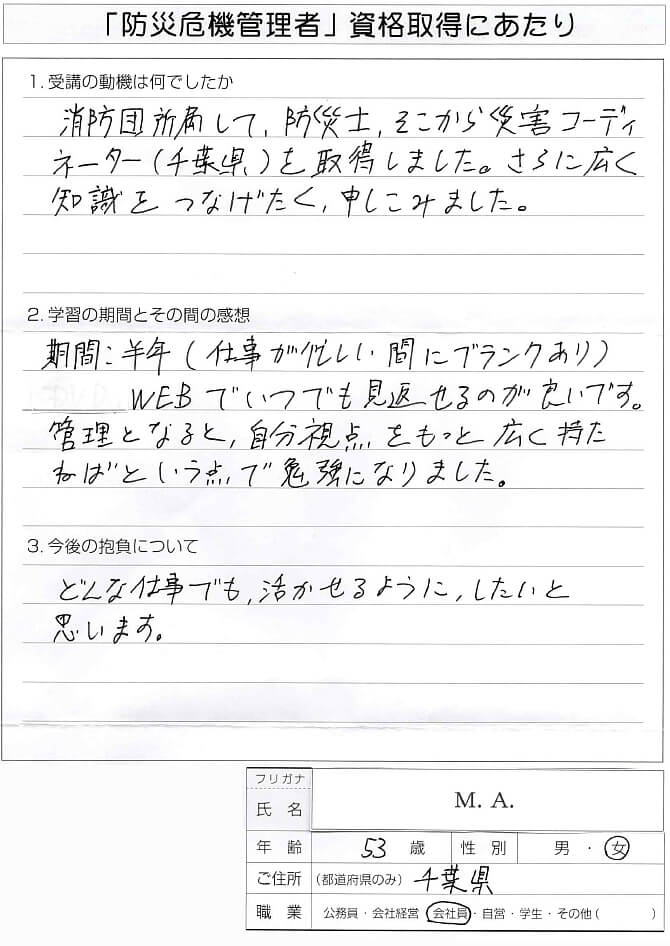 「防災危機管理者」資格取得にあたり
1. 受講の動機は何でしたか
消防団所属して、防災士、そこから災害コーディ
ネーター(千葉県)を取得しました。さらに広く
知識をつなげたく、申しこみました。
2. 学習の期間とその間の感想
期間:半年(仕事が忙しい間にブランクあり)
WEBでいつでも見返せるのが良いです。
管理となると、自分視点をもっと広く持た
ねばという点で勉強になりました。
3. 今後の抱負について
どんな仕事でも、活かせるように、したいと
思います。
フリガナ
氏名 M. A.
年齢 53 歳 性別 男・女
ご住所 (都道府県のみ) 千葉県
職業 公務員・会社経営・会社員・自営・学生・その他( )